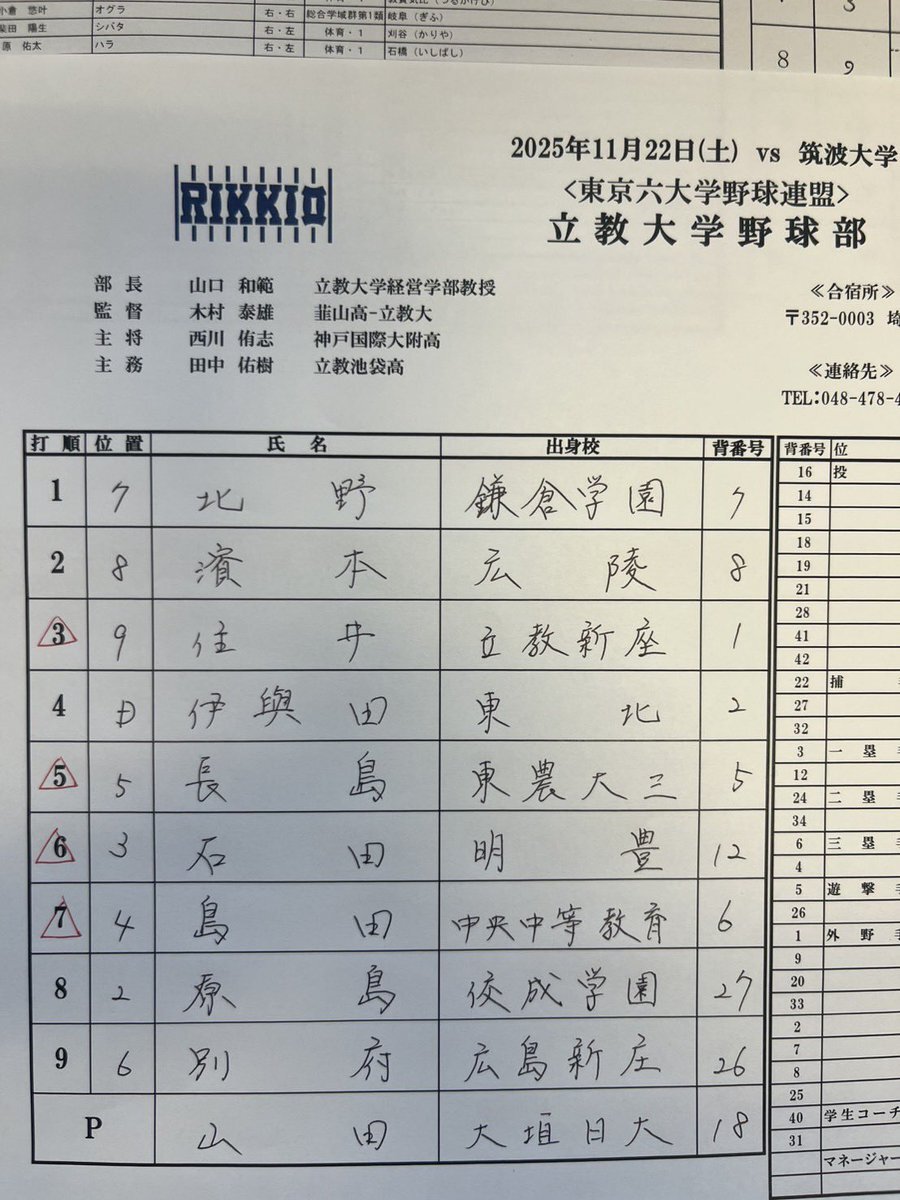 小倉 悠叶 オグラ 右・右 総合学域群第1類 岐阜（ぎふ）
柴田 陽生 シバタ 右・左 体育・1 刈谷（かりや）
原 佑太 ハラ 右・左 体育・1 石橋（いしばし）
3
8 9
2025年11月22日(土) vs 筑波大学
RIKKIO
<東京六大学野球連盟>
立教大学野球部
部長 山口 和範 立教大学経営学部教授
監督 木村 泰雄 韮山高-立教大
主将 西川 侑志 神戸国際大附高
主務 田中 佑樹 立教池袋高
≪合宿所≫
〒352-0003 埼
≪連絡先≫
TEL:048-478-4
打順 位置 氏名 出身校 背番号
1 7 北野 鎌倉学園 7
2 8 濱本 広陵 8
3 9 住井 立教新座 1
4 D 伊與田 東北 2
5 5 長島 東農大三 5
6 3 石田 明豊 12
7 4 島田 中央中等教育 6
8 2 原島 佼成学園 27
9 6 別府 広島新庄 26
P 山田 大垣日大 18
背番号 位
16 投
14
15
18
19
21
28
41
42
22 捕
27
32
3 一塁手
12
24 二塁手
34
6 三塁手
4
5 遊撃手
26
1 外野手
9
20
33
2
7
8
25
40 学生コーチ
31
マネージャー